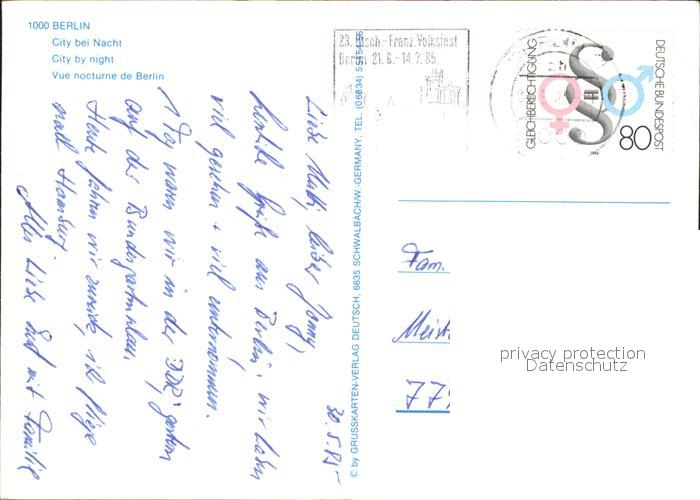 1000 BERLIN
City bei Nacht
City by night
Vue nocturne de Berlin
23. Dtsch.-Franz. Volksfest
Berlin 21. 6. - 14. 7. 85
GLEICHBERECHTIGUNG
DEUTSCHE BUNDESPOST
80
© by GRUSSKARTEN-VERLAG DEUTSCH, 6635 SCHWALBACH/W.-GERMANY, TEL. (06834)
30.5.85-
Liebe Mutti, lieber
Grüße aus Berlin, wir haben
viel gesehen + viel unternommen.
1 Tag waren wir in der DDR, gestern
auf der Bundesgartenschau.
Heute fahren wir zurück, ich fliege
nach Hamburg.
Alles Liebe Gust mit Familie
Fam.
Meist
77
privacy protection
Datenschutz